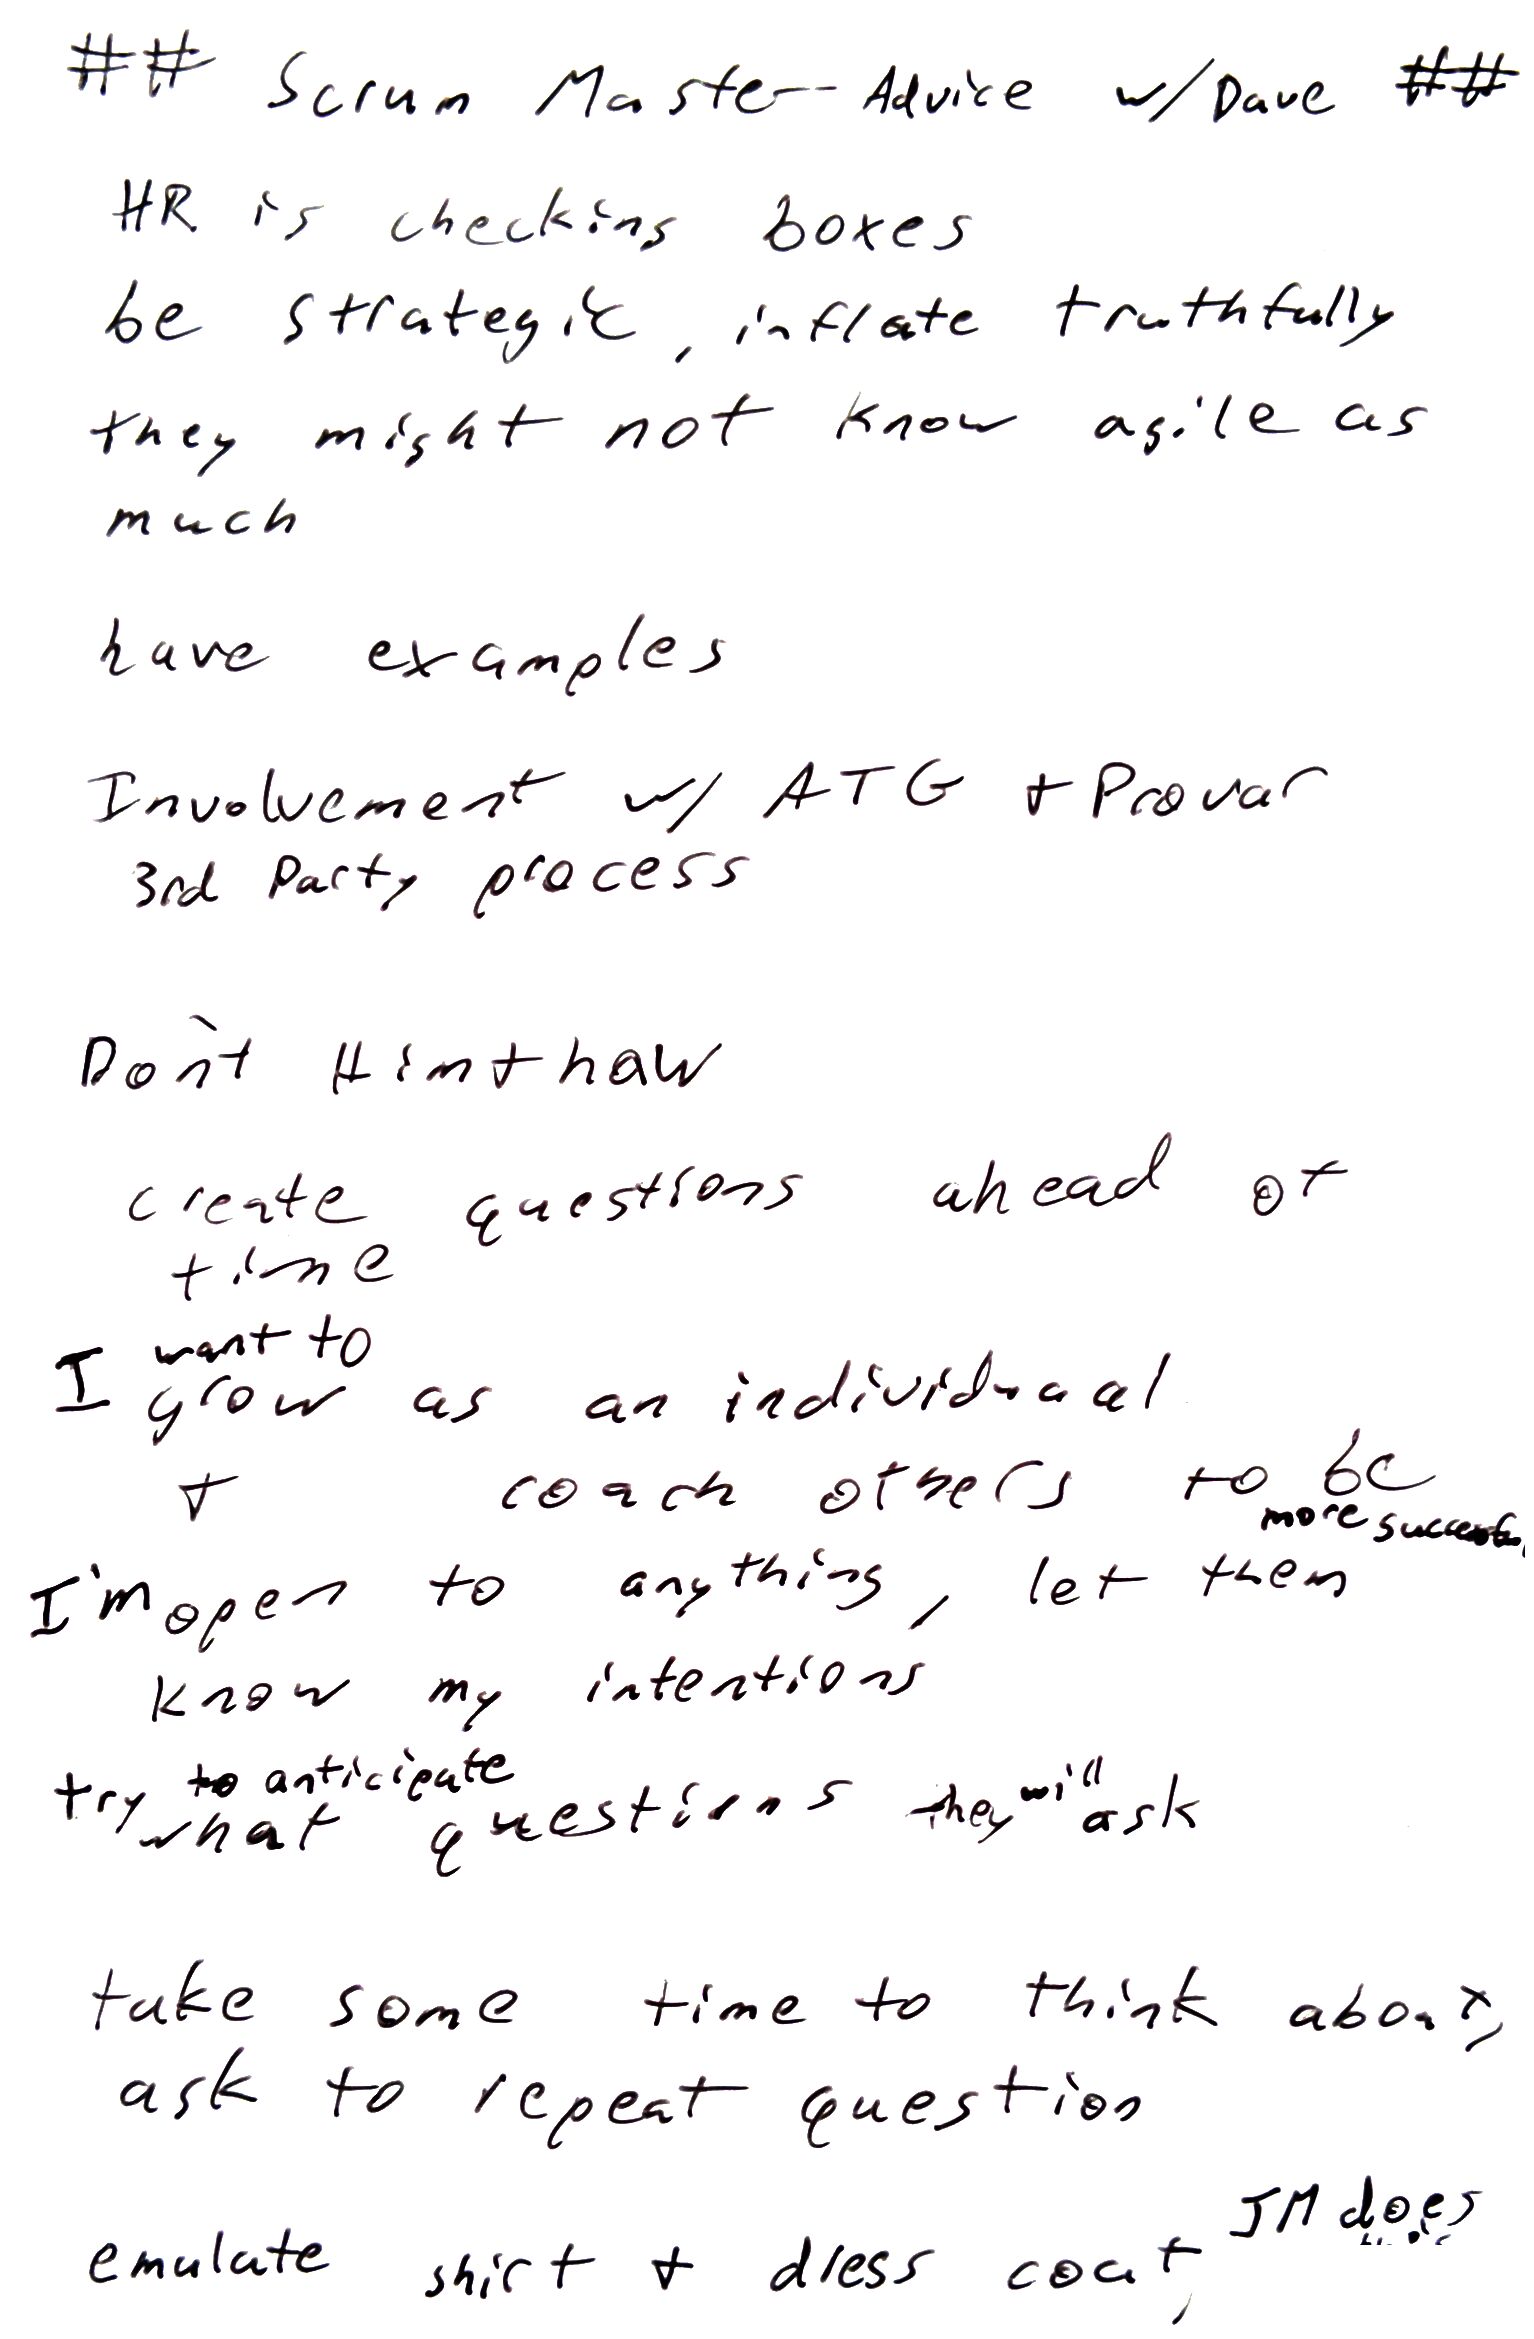 ## Scrum Master Advice w/ Dave ##
HR is checking boxes
be strategic, inflate truthfully
they might not know agile as
much
have examples
Involvement w/ ATG + Provar
3rd Party process
Don't Him + haw
create questions ahead of
time
I want to
grow as an individual
+ coach others to be
more successful
I'm open to anything, let them
know my intentions
try to anticipate
what questions they will ask
take some time to think about,
ask to repeat question
emulate shirt + dress coat, JM does
this